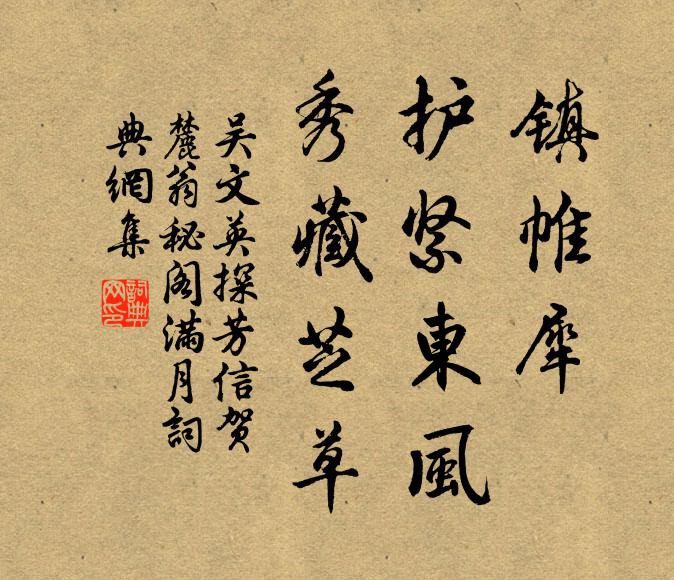 镇帷犀
护紧東風
秀藏芝草
吴文英探芳信贺
麓翁秘阁满月詞
典網集
詞典网印